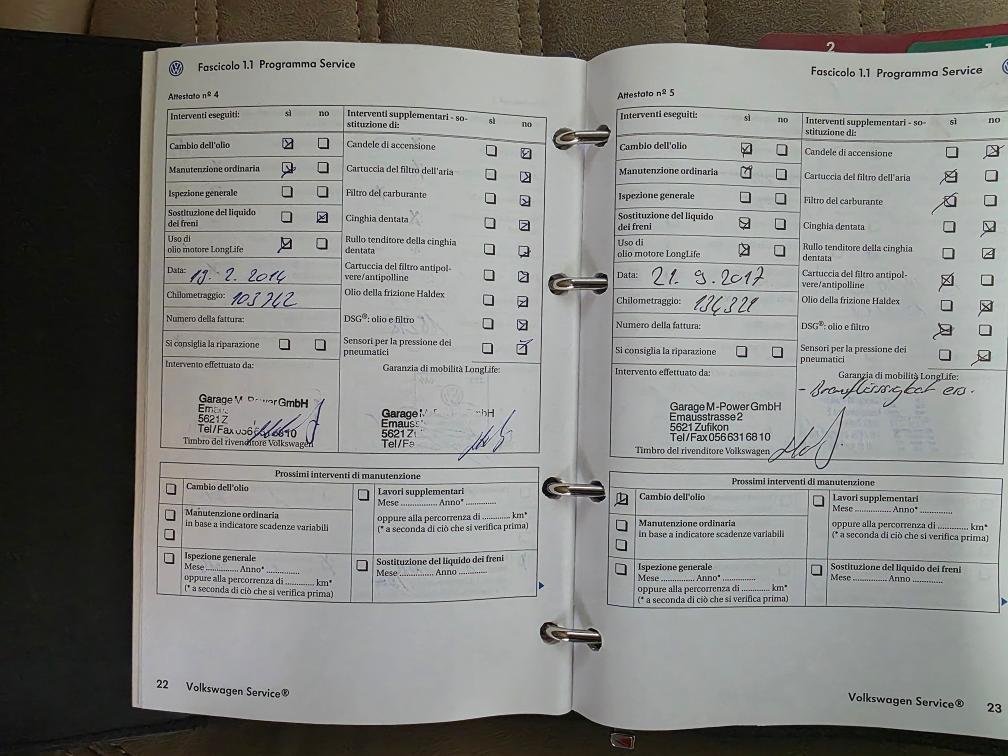 2
1
Fascicolo 1.1 Programma Service
Attestato nº 4
Interventi eseguiti: sì no
Cambio dell'olio
Manutenzione ordinaria
Ispezione generale
Sostituzione del liquido
dei freni
Uso di
olio motore LongLife
Data: 19. 2. 2014
Chilometraggio: 103742
Numero della fattura:
Si consiglia la riparazione
Intervento effettuato da:
Garage M-Power GmbH
5621 Z
Tel/Fax 056 6810
Timbro del rivenditore Volkswagen
Interventi supplementari - so-
stituzione di: sì no
Candele di accensione
Cartuccia del filtro dell'aria
Filtro del carburante
Cinghia dentata
Rullo tenditore della cinghia
dentata
Cartuccia del filtro antipol-
vere/antipolline
Olio della frizione Haldex
DSG®: olio e filtro
Sensori per la pressione dei
pneumatici
Garanzia di mobilità LongLife:
Garage GmbH
Emauss
5621 Z
Tel/Fa
Prossimi interventi di manutenzione
Cambio dell'olio
Manutenzione ordinaria
in base a indicatore scadenze variabili
Ispezione generale
Mese ............. Anno* .............
oppure alla percorrenza di ............ km*
(* a seconda di ciò che si verifica prima)
Lavori supplementari
Mese ............. Anno* .............
oppure alla percorrenza di ............ km*
(* a seconda di ciò che si verifica prima)
Sostituzione del liquido dei freni
Mese ............. Anno .............
22 Volkswagen Service®
Fascicolo 1.1 Programma Service
Attestato nº 5
Interventi eseguiti: sì no
Cambio dell'olio
Manutenzione ordinaria
Ispezione generale
Sostituzione del liquido
dei freni
Uso di
olio motore LongLife
Data: 21. 9. 2017
Chilometraggio: 134321
Numero della fattura:
Si consiglia la riparazione
Intervento effettuato da:
Garage M-Power GmbH
Emausstrasse 2
5621 Zufikon
Tel/Fax 056 631 68 10
Timbro del rivenditore Volkswagen
Interventi supplementari - so-
stituzione di: sì no
Candele di accensione
Cartuccia del filtro dell'aria
Filtro del carburante
Cinghia dentata
Rullo tenditore della cinghia
dentata
Cartuccia del filtro antipol-
vere/antipolline
Olio della frizione Haldex
DSG®: olio e filtro
Sensori per la pressione dei
pneumatici
Garanzia di mobilità LongLife:
Prossimi interventi di manutenzione
Cambio dell'olio
Manutenzione ordinaria
in base a indicatore scadenze variabili
Ispezione generale
Mese ............. Anno* .............
oppure alla percorrenza di ............ km*
(* a seconda di ciò che si verifica prima)
Lavori supplementari
Mese ............. Anno* .............
oppure alla percorrenza di ............ km*
(* a seconda di ciò che si verifica prima)
Sostituzione del liquido dei freni
Mese ............. Anno .............
Volkswagen Service® 23